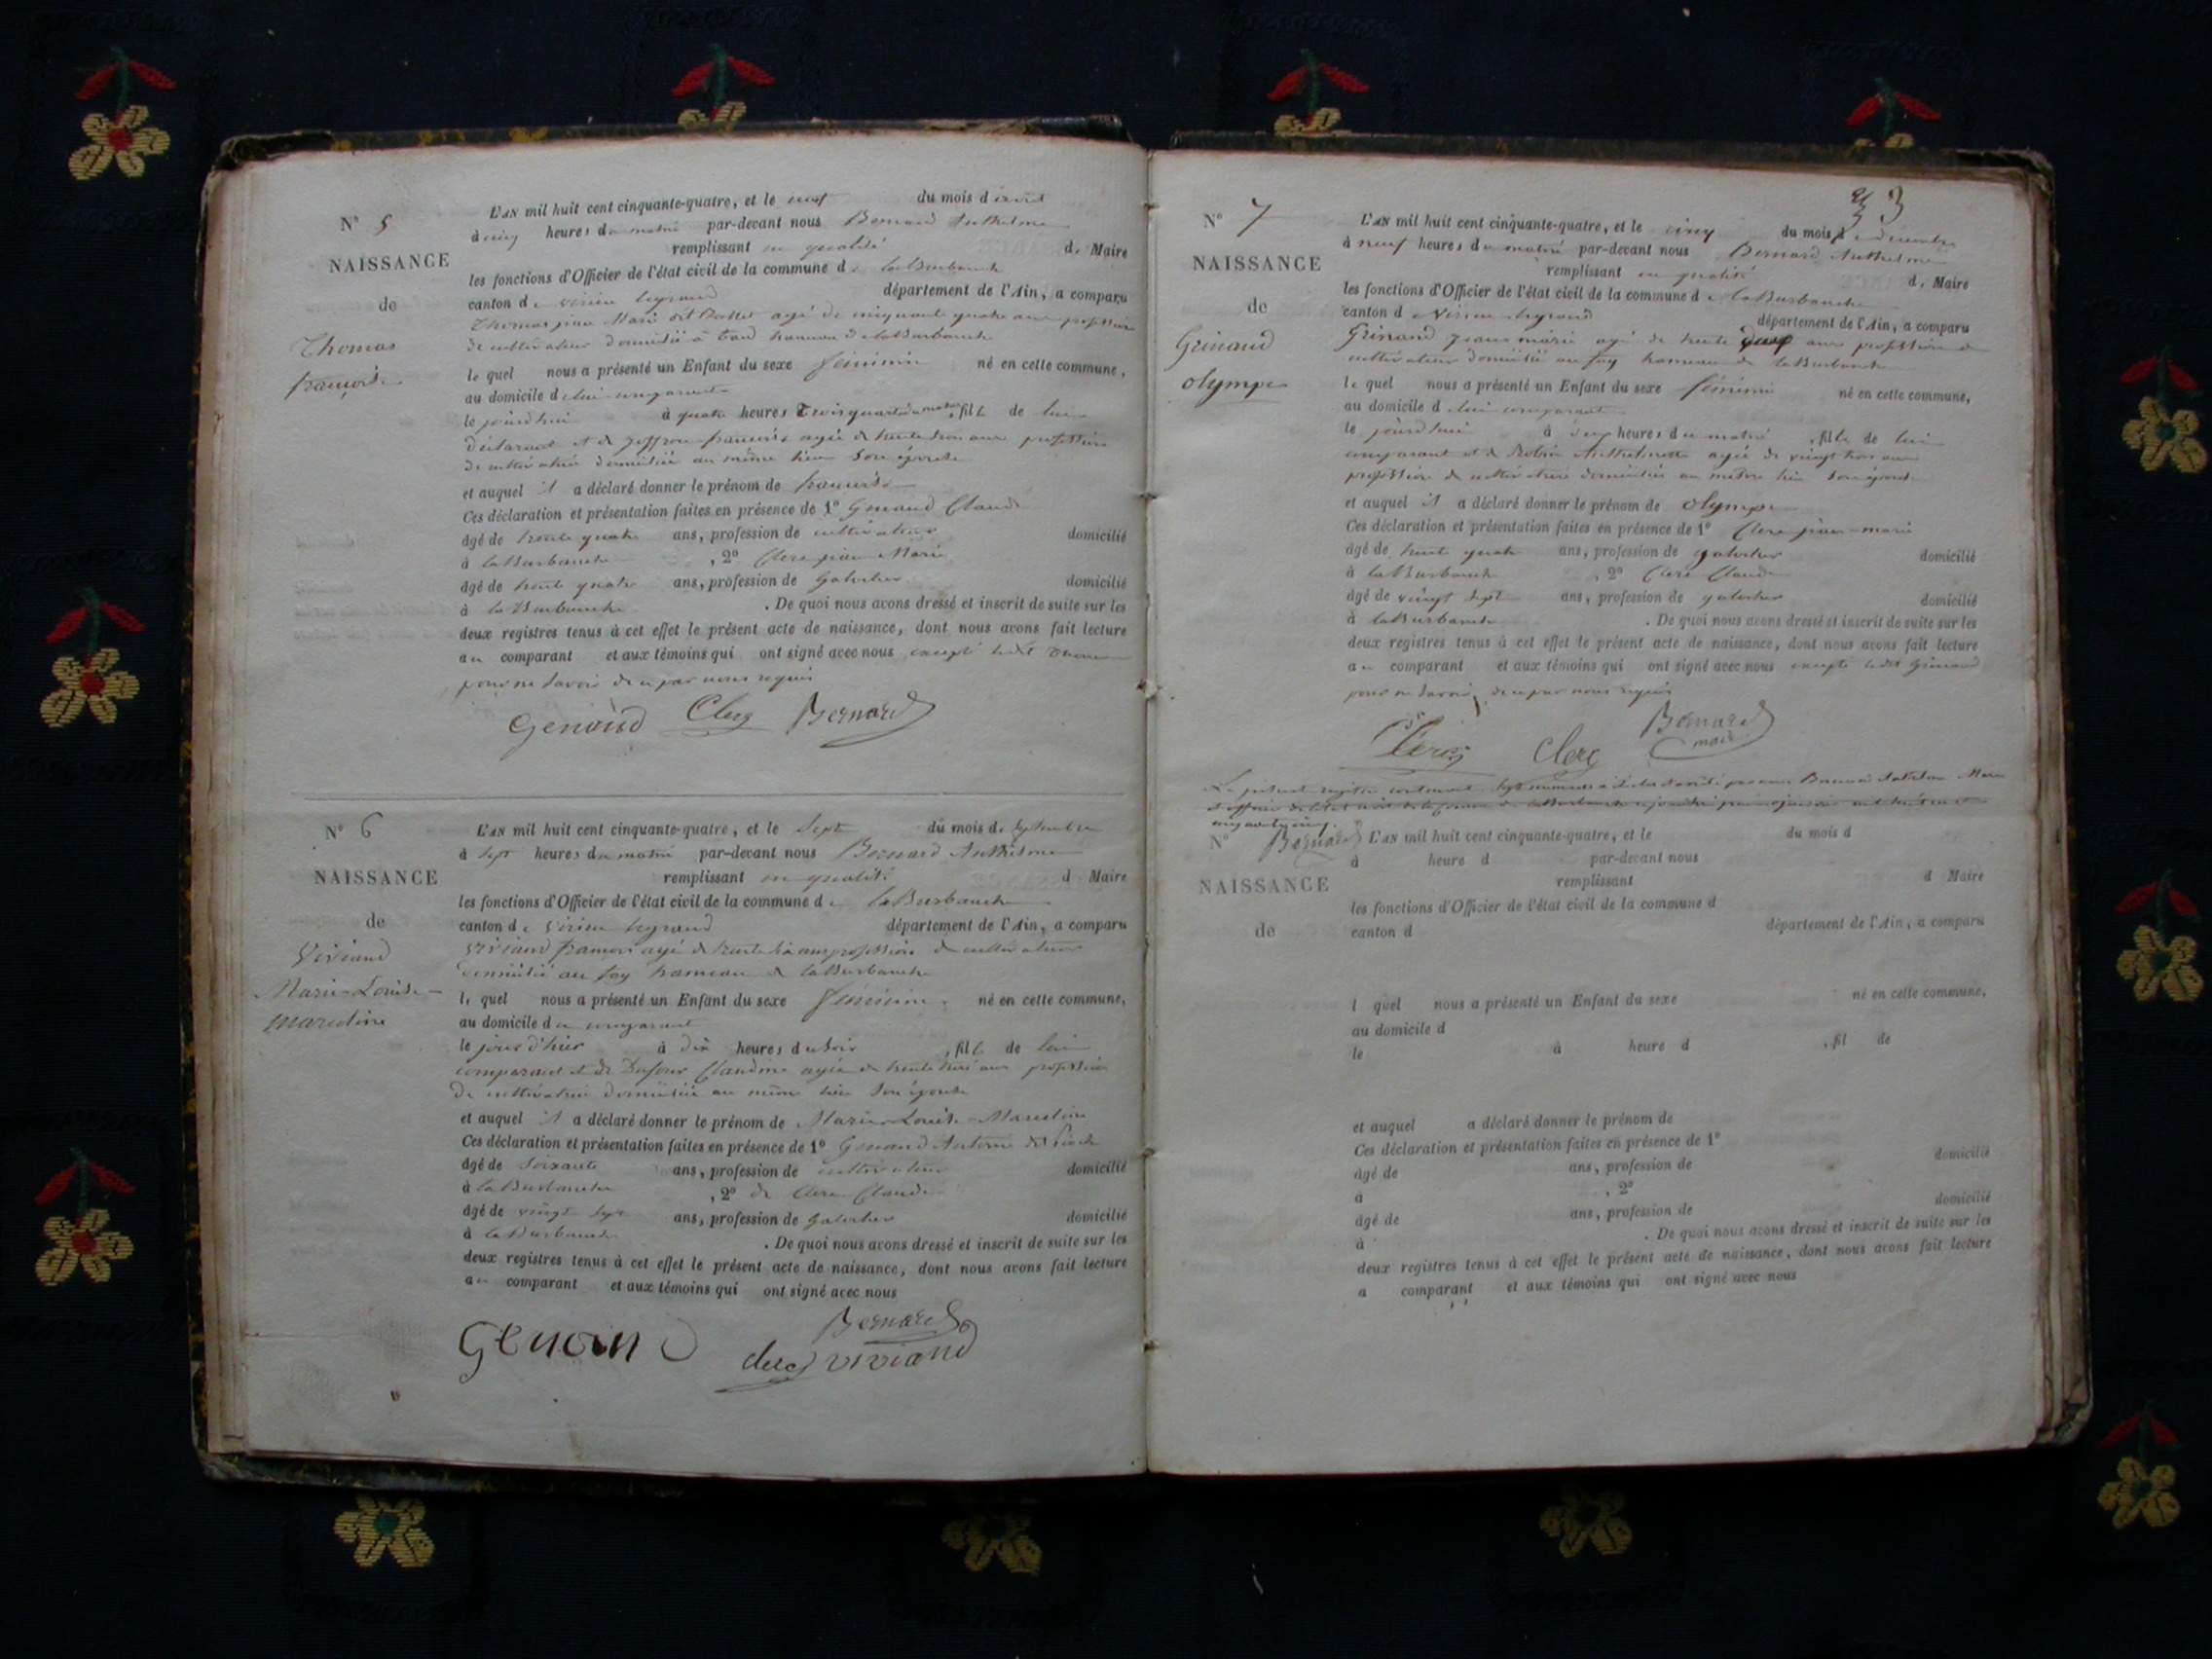 N° 5
NAISSANCE
de
Thomas
françoise
L'AN mil huit cent cinquante-quatre, et le neuf du mois d'avril
à cinq heures du matin par-devant nous Bernard Anthelme
remplissant en qualité de Maire
les fonctions d'Officier de l'état civil de la commune de la Burbanche
canton de virieu legrand département de l'Ain, a comparu
Thomas jean Marie dit agé de cinquante quatre ans profession
de cultivateur domicilié à hameau de la Burbanche
le quel nous a présenté un Enfant du sexe féminin né en cette commune,
au domicile de lui comparant
le jourd'hui à quatre heures trois quarts du matin, fille de lui
déclarant et de françoise agée de trente trois ans profession
de cultivatrice domiciliée au même lieu son épouse
et auquel il a déclaré donner le prénom de françoise
Ces déclaration et présentation faites en présence de 1° Genaud Claude
âgé de trente quatre ans, profession de cultivateur domicilié
à la Burbanche , 2° Clerc jean Marie
âgé de trente quatre ans, profession de galocher domicilié
à la Burbanche . De quoi nous avons dressé et inscrit de suite sur les
deux registres tenus à cet effet le présent acte de naissance, dont nous avons fait lecture
au comparant et aux témoins qui ont signé avec nous excepté ledit Thomas
pour ne savoir de ce par nous requis
Genaud Clerc Bernard
N° 6
NAISSANCE
de
Viviand
Marie-Louise-
marceline
L'AN mil huit cent cinquante-quatre, et le sept du mois de septembre
à sept heures du matin par-devant nous Bernard Anthelme
remplissant en qualité d Maire
les fonctions d'Officier de l'état civil de la commune de la Burbanche
canton de virieu legrand département de l'Ain, a comparu
Viviand françois agé de trente six ans profession de cultivateur
domicilié au fay hameau de la Burbanche
le quel nous a présenté un Enfant du sexe féminin né en cette commune,
au domicile du comparant
le jour d'hier à dix heures du soir , fille de lui
comparant et de Dufour Claudine agée de trente ans profession
de cultivatrice domiciliée au même lieu son épouse
et auquel il a déclaré donner le prénom de Marie-Louise-Marceline
Ces déclaration et présentation faites en présence de 1° Genaud Antoine dit
âgé de soixante ans, profession de cultivateur domicilié
à la Burbanche , 2° de Clerc Claude
âgé de vingt sept ans, profession de galocher domicilié
à la Burbanche . De quoi nous avons dressé et inscrit de suite sur les
deux registres tenus à cet effet le présent acte de naissance, dont nous avons fait lecture
au comparant et aux témoins qui ont signé avec nous
Bernard
Genand clerc viviand
3
N° 7
NAISSANCE
de
Grinand
olympe
L'AN mil huit cent cinquante-quatre, et le cinq du mois de décembre
à neuf heures du matin par-devant nous Bernard Anthelme
remplissant en qualité de Maire
les fonctions d'Officier de l'état civil de la commune de la Burbanche
canton de Virieu legrand département de l'Ain, a comparu
Grinand jean marie agé de trente deux ans profession de
cultivateur domicilié au fay hameau de la Burbanche
le quel nous a présenté un Enfant du sexe féminin né en cette commune,
au domicile de lui comparant
le jourd'hui à heures du matin , fille de lui
comparant et de Robin Anthelmette agée de vingt trois ans
profession de cultivatrice domiciliée au même lieu son épouse
et auquel il a déclaré donner le prénom de olympe
Ces déclaration et présentation faites en présence de 1° Clerc jean-marie
âgé de trente quatre ans, profession de galocher domicilié
à la Burbanche , 2° Clerc Claude
âgé de vingt sept ans, profession de galocher domicilié
à la Burbanche . De quoi nous avons dressé et inscrit de suite sur les
deux registres tenus à cet effet le présent acte de naissance, dont nous avons fait lecture
au comparant et aux témoins qui ont signé avec nous excepté ledit Grinand
pour ne savoir de ce par nous requis
Clerc Clerc Bernard
maire
Le présent registre contenant sept numéros a été clos arrêté par nous Bernard Anthelme Maire
et officier de l'état civil de la commune de la Burbanche
cinquante cinq.
Bernard
N° L'AN mil huit cent cinquante-quatre, et le du mois d
à heure d par-devant nous
NAISSANCE remplissant d Maire
les fonctions d'Officier de l'état civil de la commune d
de canton d département de l'Ain, a comparu
l quel nous a présenté un Enfant du sexe né en cette commune,
au domicile d
le à heure d , fil de
et auquel a déclaré donner le prénom de
Ces déclaration et présentation faites en présence de 1°
âgé de ans, profession de domicilié
à , 2°
âgé de ans, profession de domicilié
à . De quoi nous avons dressé et inscrit de suite sur les
deux registres tenus à cet effet le présent acte de naissance, dont nous avons fait lecture
a comparant et aux témoins qui ont signé avec nous